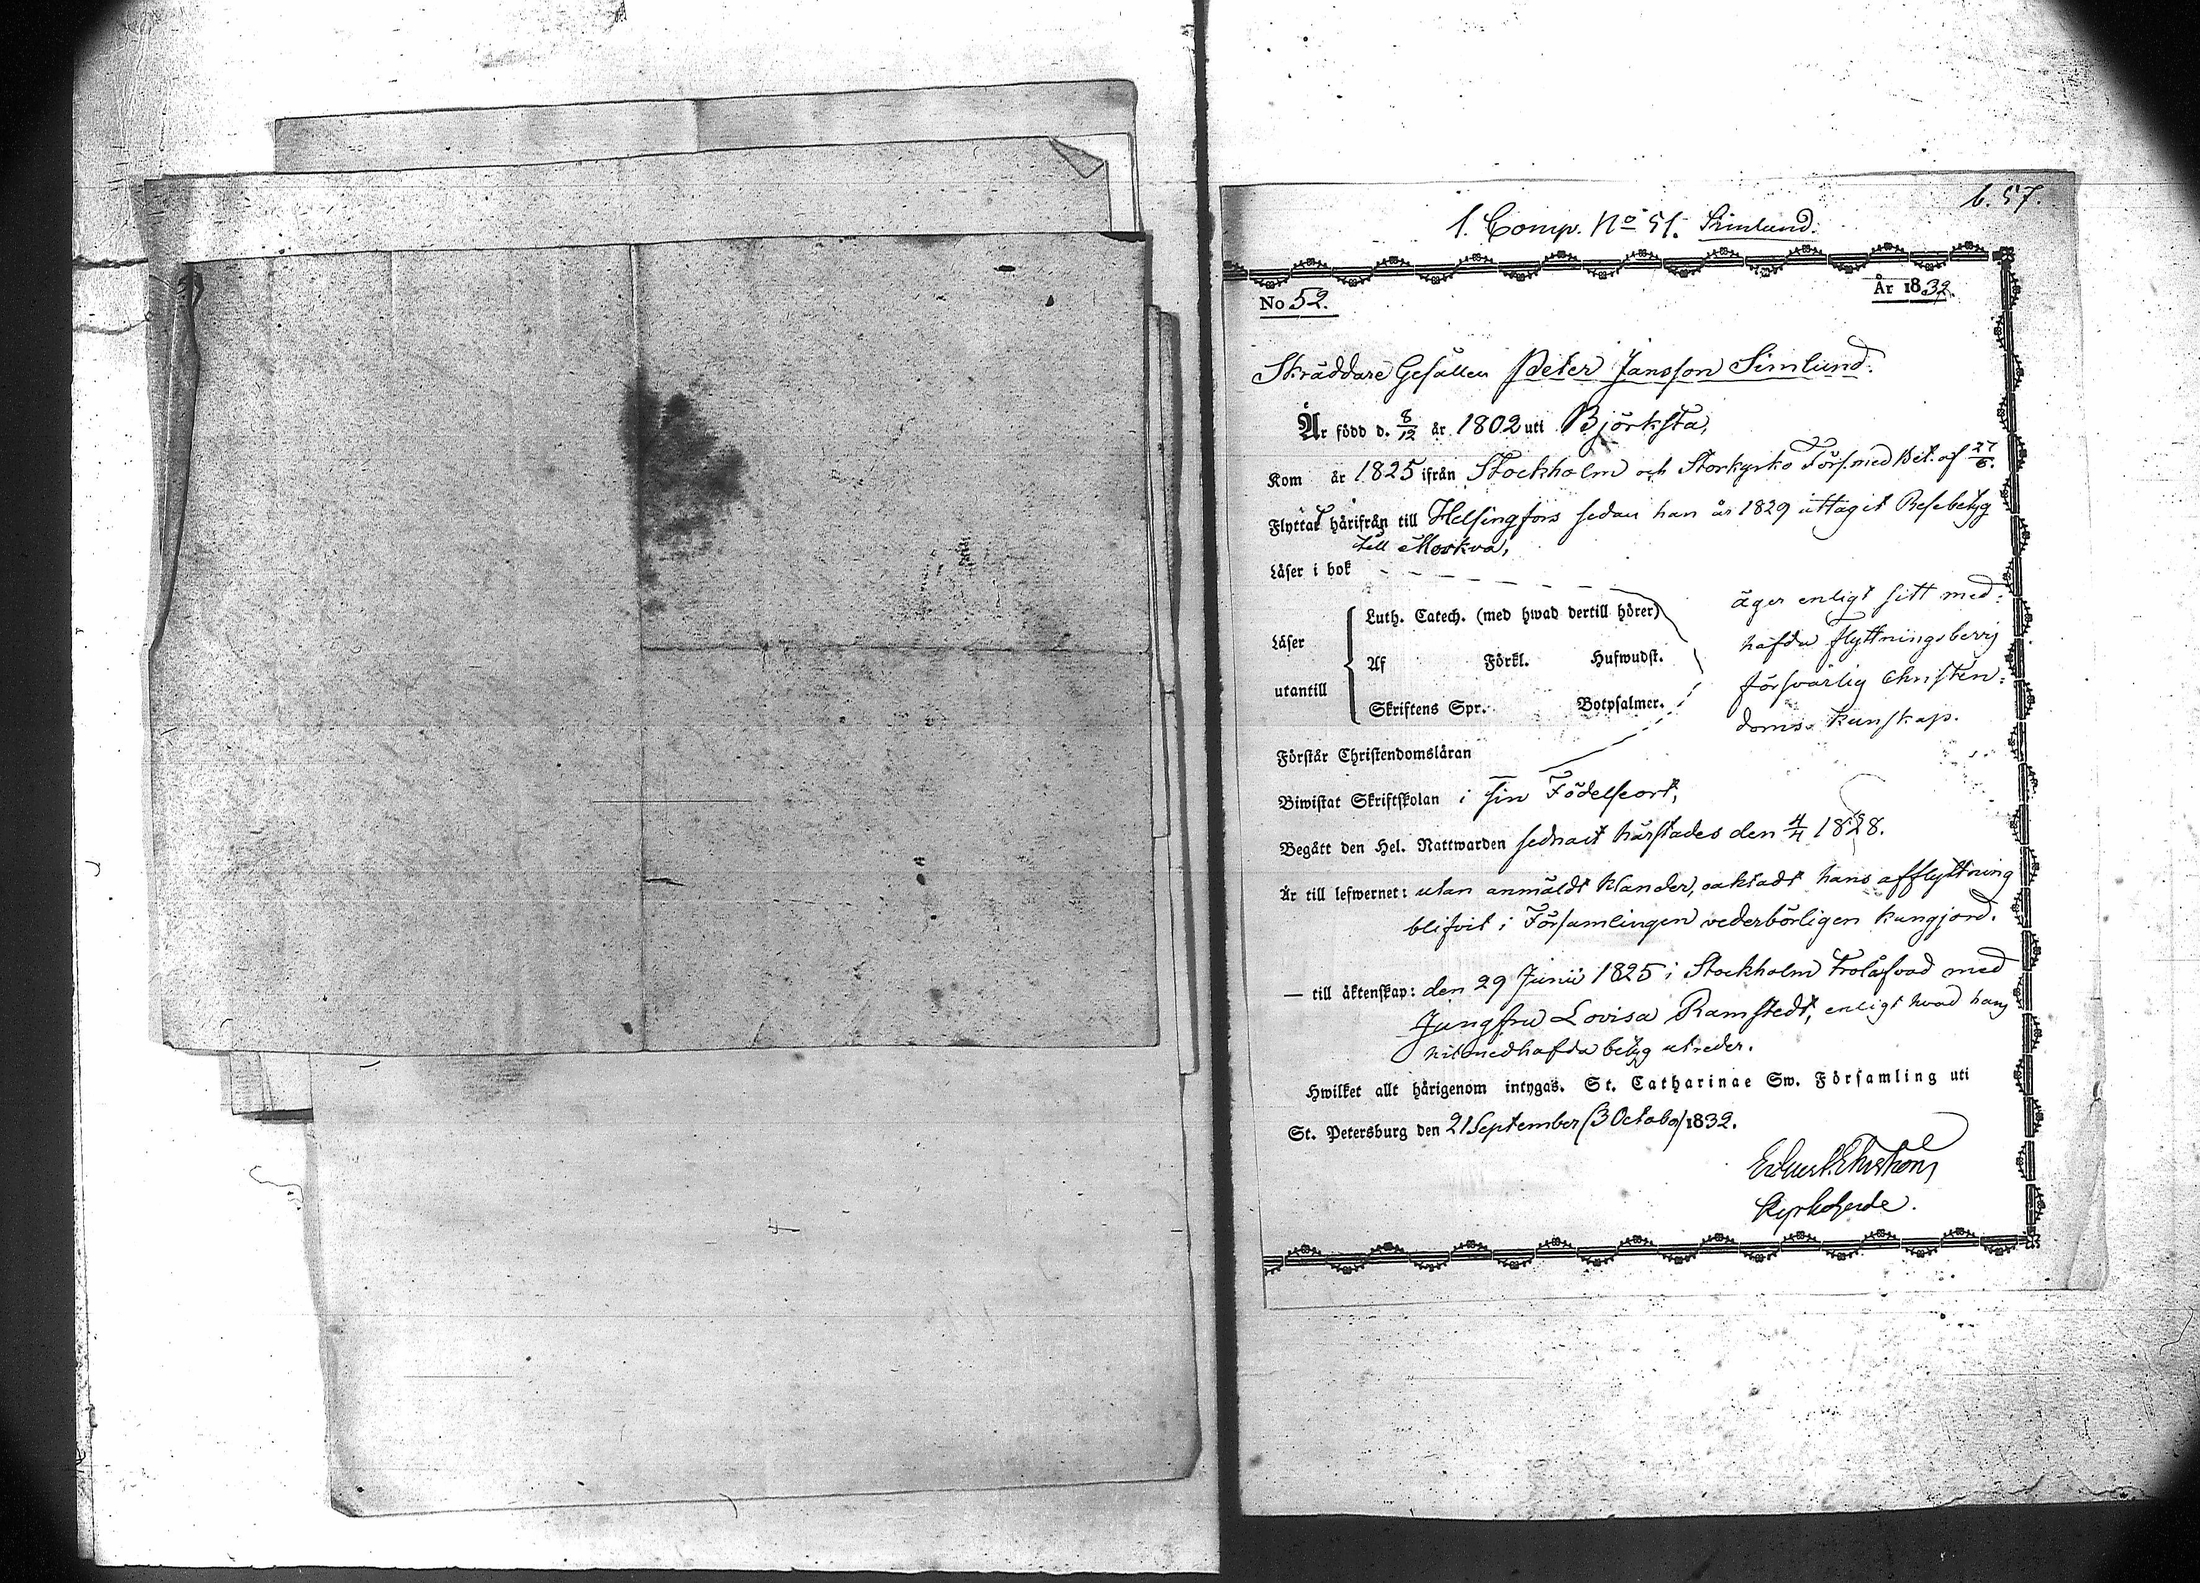 b. 57.
1. Comp. No 51. Simlund.
No 52.
År 1832
Skräddare Gesällen Peter Jansson Simlund.
Är född d. 8/12 år 1802 uti Björksta,
Kom år 1825 ifrån Stockholm och Storkyrko Förs. med Bet. af 27/6.
Flyttat härifrån till Helsingfors sedan han år 1829 uttagit Resebetyg
till Moskva,
Läser i bok
äger enligt sitt med-
Luth. Catech. (med hwad dertill hörer)
hafda flyttningsbetyg
Läser
Af Förkl. Hufwudst.
försvarlig Christen-
utantill
Skriftens Spr. Botpsalmer.
doms kunskap.
Förstår Christendomsläran
Biwistat Skriftskolan i sin Födelseort,
Begått den Hel. Nattwarden sednast härstädes den 4/4 1828.
Är till lefwernet: utan anmäldt klander, oaktadt hans afflyttning
blifvit i Församlingen vederbörligen kungjord.
— till äktenskap: den 29 Junii 1825 i Stockholm trolofvad med
Jungfru Lovisa Ramstedt, enligt hvad hans
hitmedhafda betyg utreder.
Hwilket allt härigenom intygas. St. Catharinae Sw. Församling uti
St. Petersburg den 21 September (3 October) 1832.
Kyrkoherde.